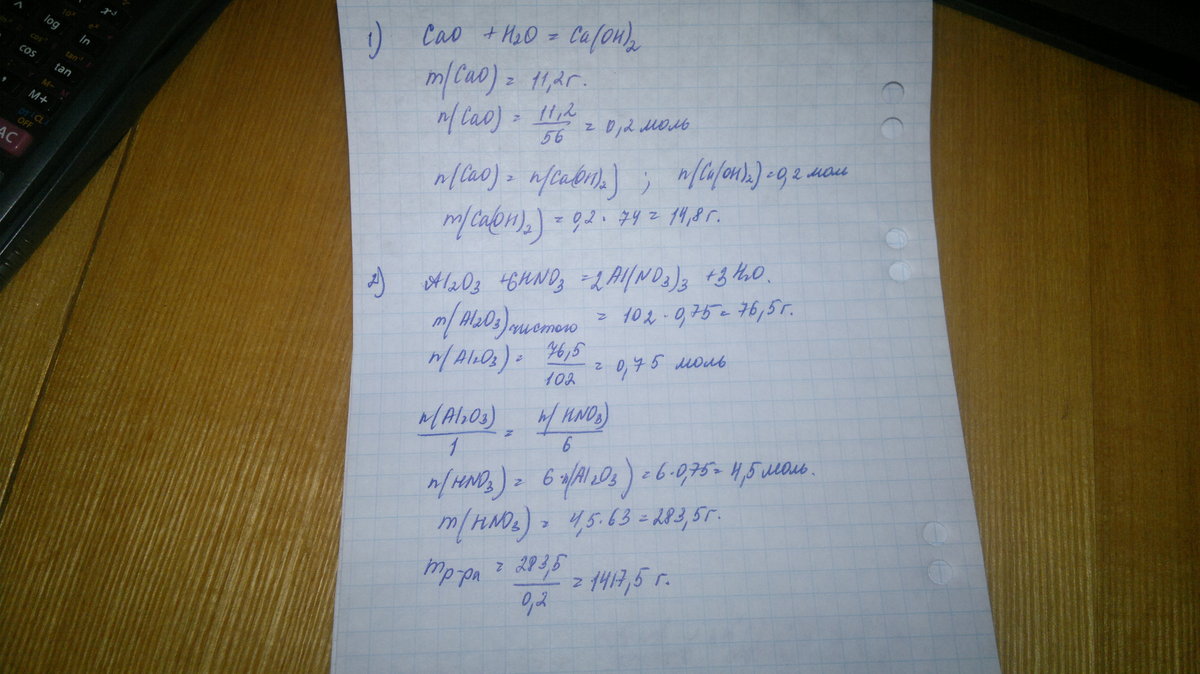 1) CaO + H2O = Ca(OH)2
m(CaO) = 11,2г.
n(CaO) = 11,2/56 = 0,2 моль
n(CaO) = n(Ca(OH)2) ; n(Ca(OH)2) = 0,2 моль
m(Ca(OH)2) = 0,2 · 74 = 14,8 г.
2) Al2O3 + 6HNO3 = 2Al(NO3)3 + 3H2O.
m(Al2O3) чистого = 102 · 0,75 = 76,5 г.
n(Al2O3) = 76,5/102 = 0,75 моль
n(Al2O3)/1 = n(HNO3)/6
n(HNO3) = 6·n(Al2O3) = 6·0,75 = 4,5 моль.
m(HNO3) = 4,5·63 = 283,5 г.
mр-ра = 283,5/0,2 = 1417,5 г.
log
ln
cos
tan
M+
AC
OFF